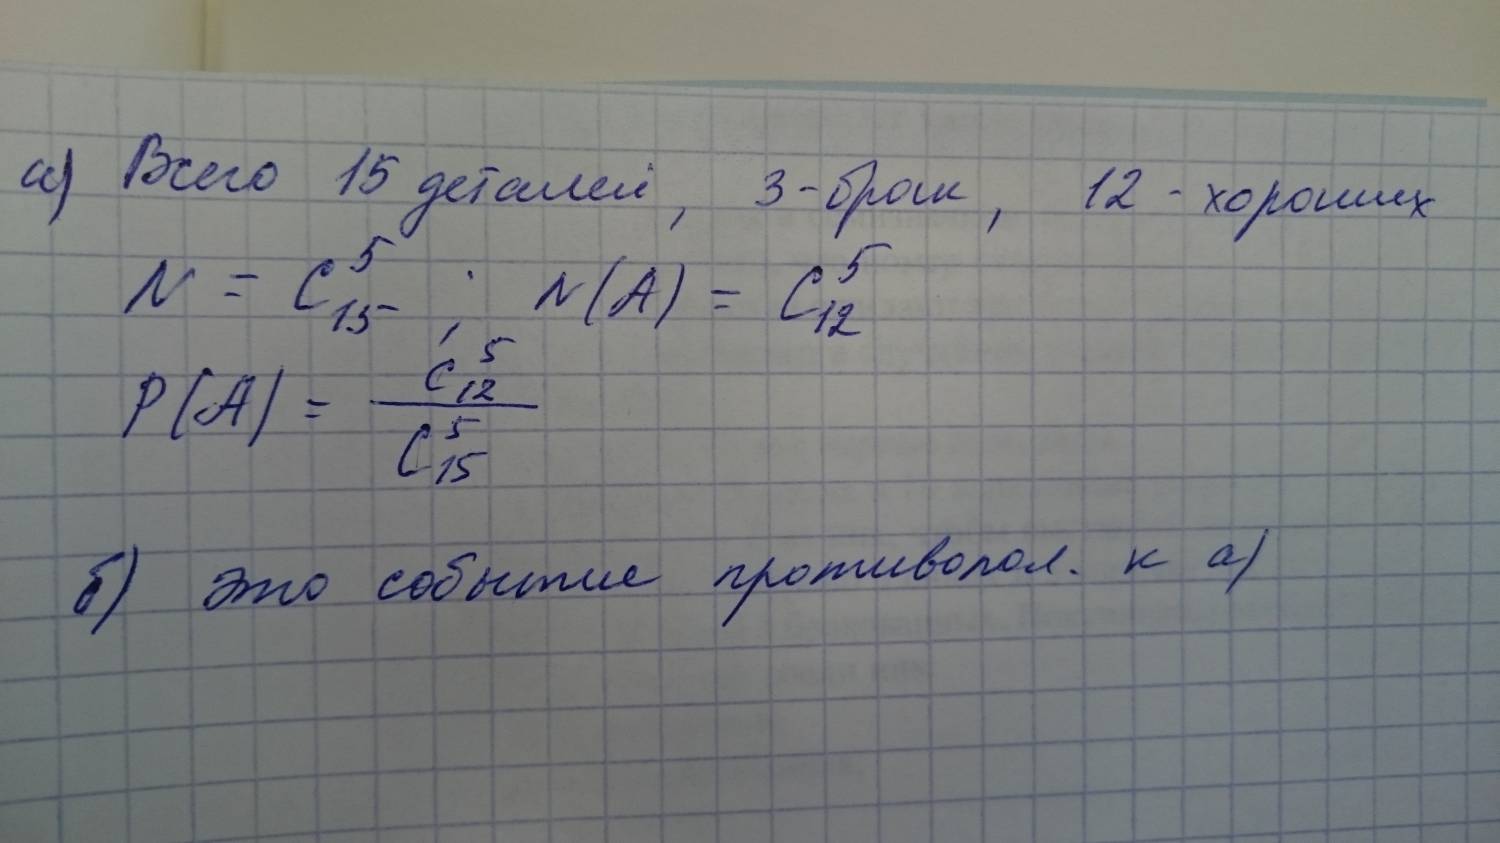 а) Всего 15 деталей, 3-брак, 12 - хороших
N = C₁₅⁵ ; N(A) = C₁₂⁵
P(A) = C₁₂⁵ / C₁₅⁵
б) это событие противопол. к а)